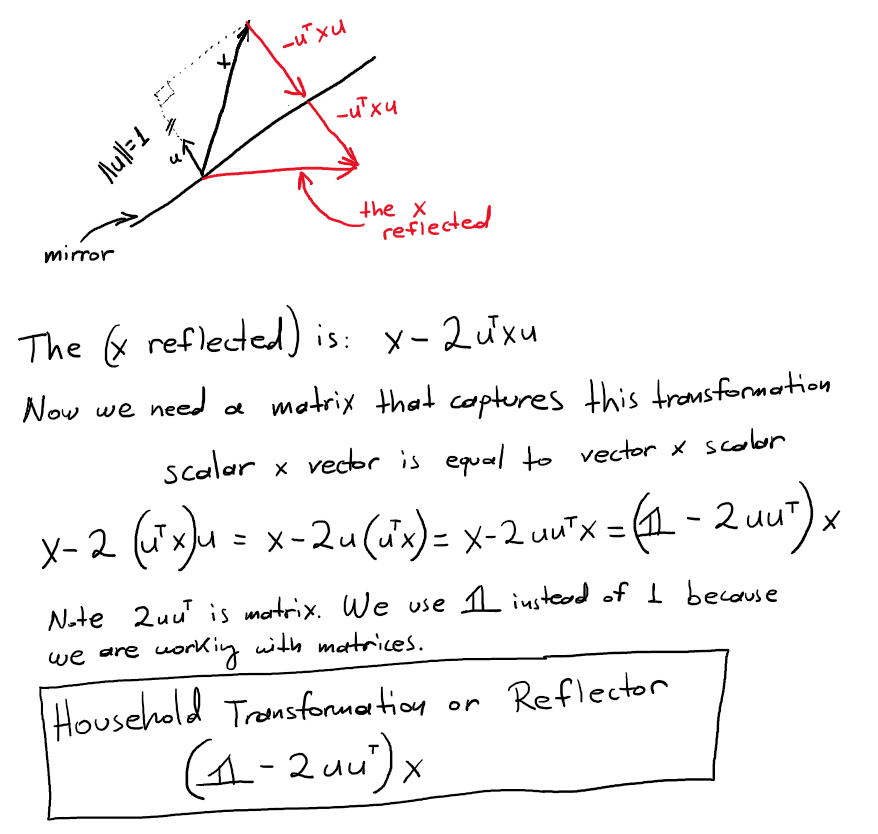 -uᵀxu
x
-uᵀxu
‖u‖=1
u
the x
reflected
mirror
The (x reflected) is: x - 2uᵀxu
Now we need a matrix that captures this transformation
scalar x vector is equal to vector x scalar
x - 2 (uᵀx)u = x - 2u(uᵀx) = x - 2uuᵀx = (𝟙 - 2uuᵀ) x
Note 2uuᵀ is matrix. We use 𝟙 instead of 1 because
we are workiy with matrices.
Household Transformation or Reflector
(𝟙 - 2uuᵀ) x